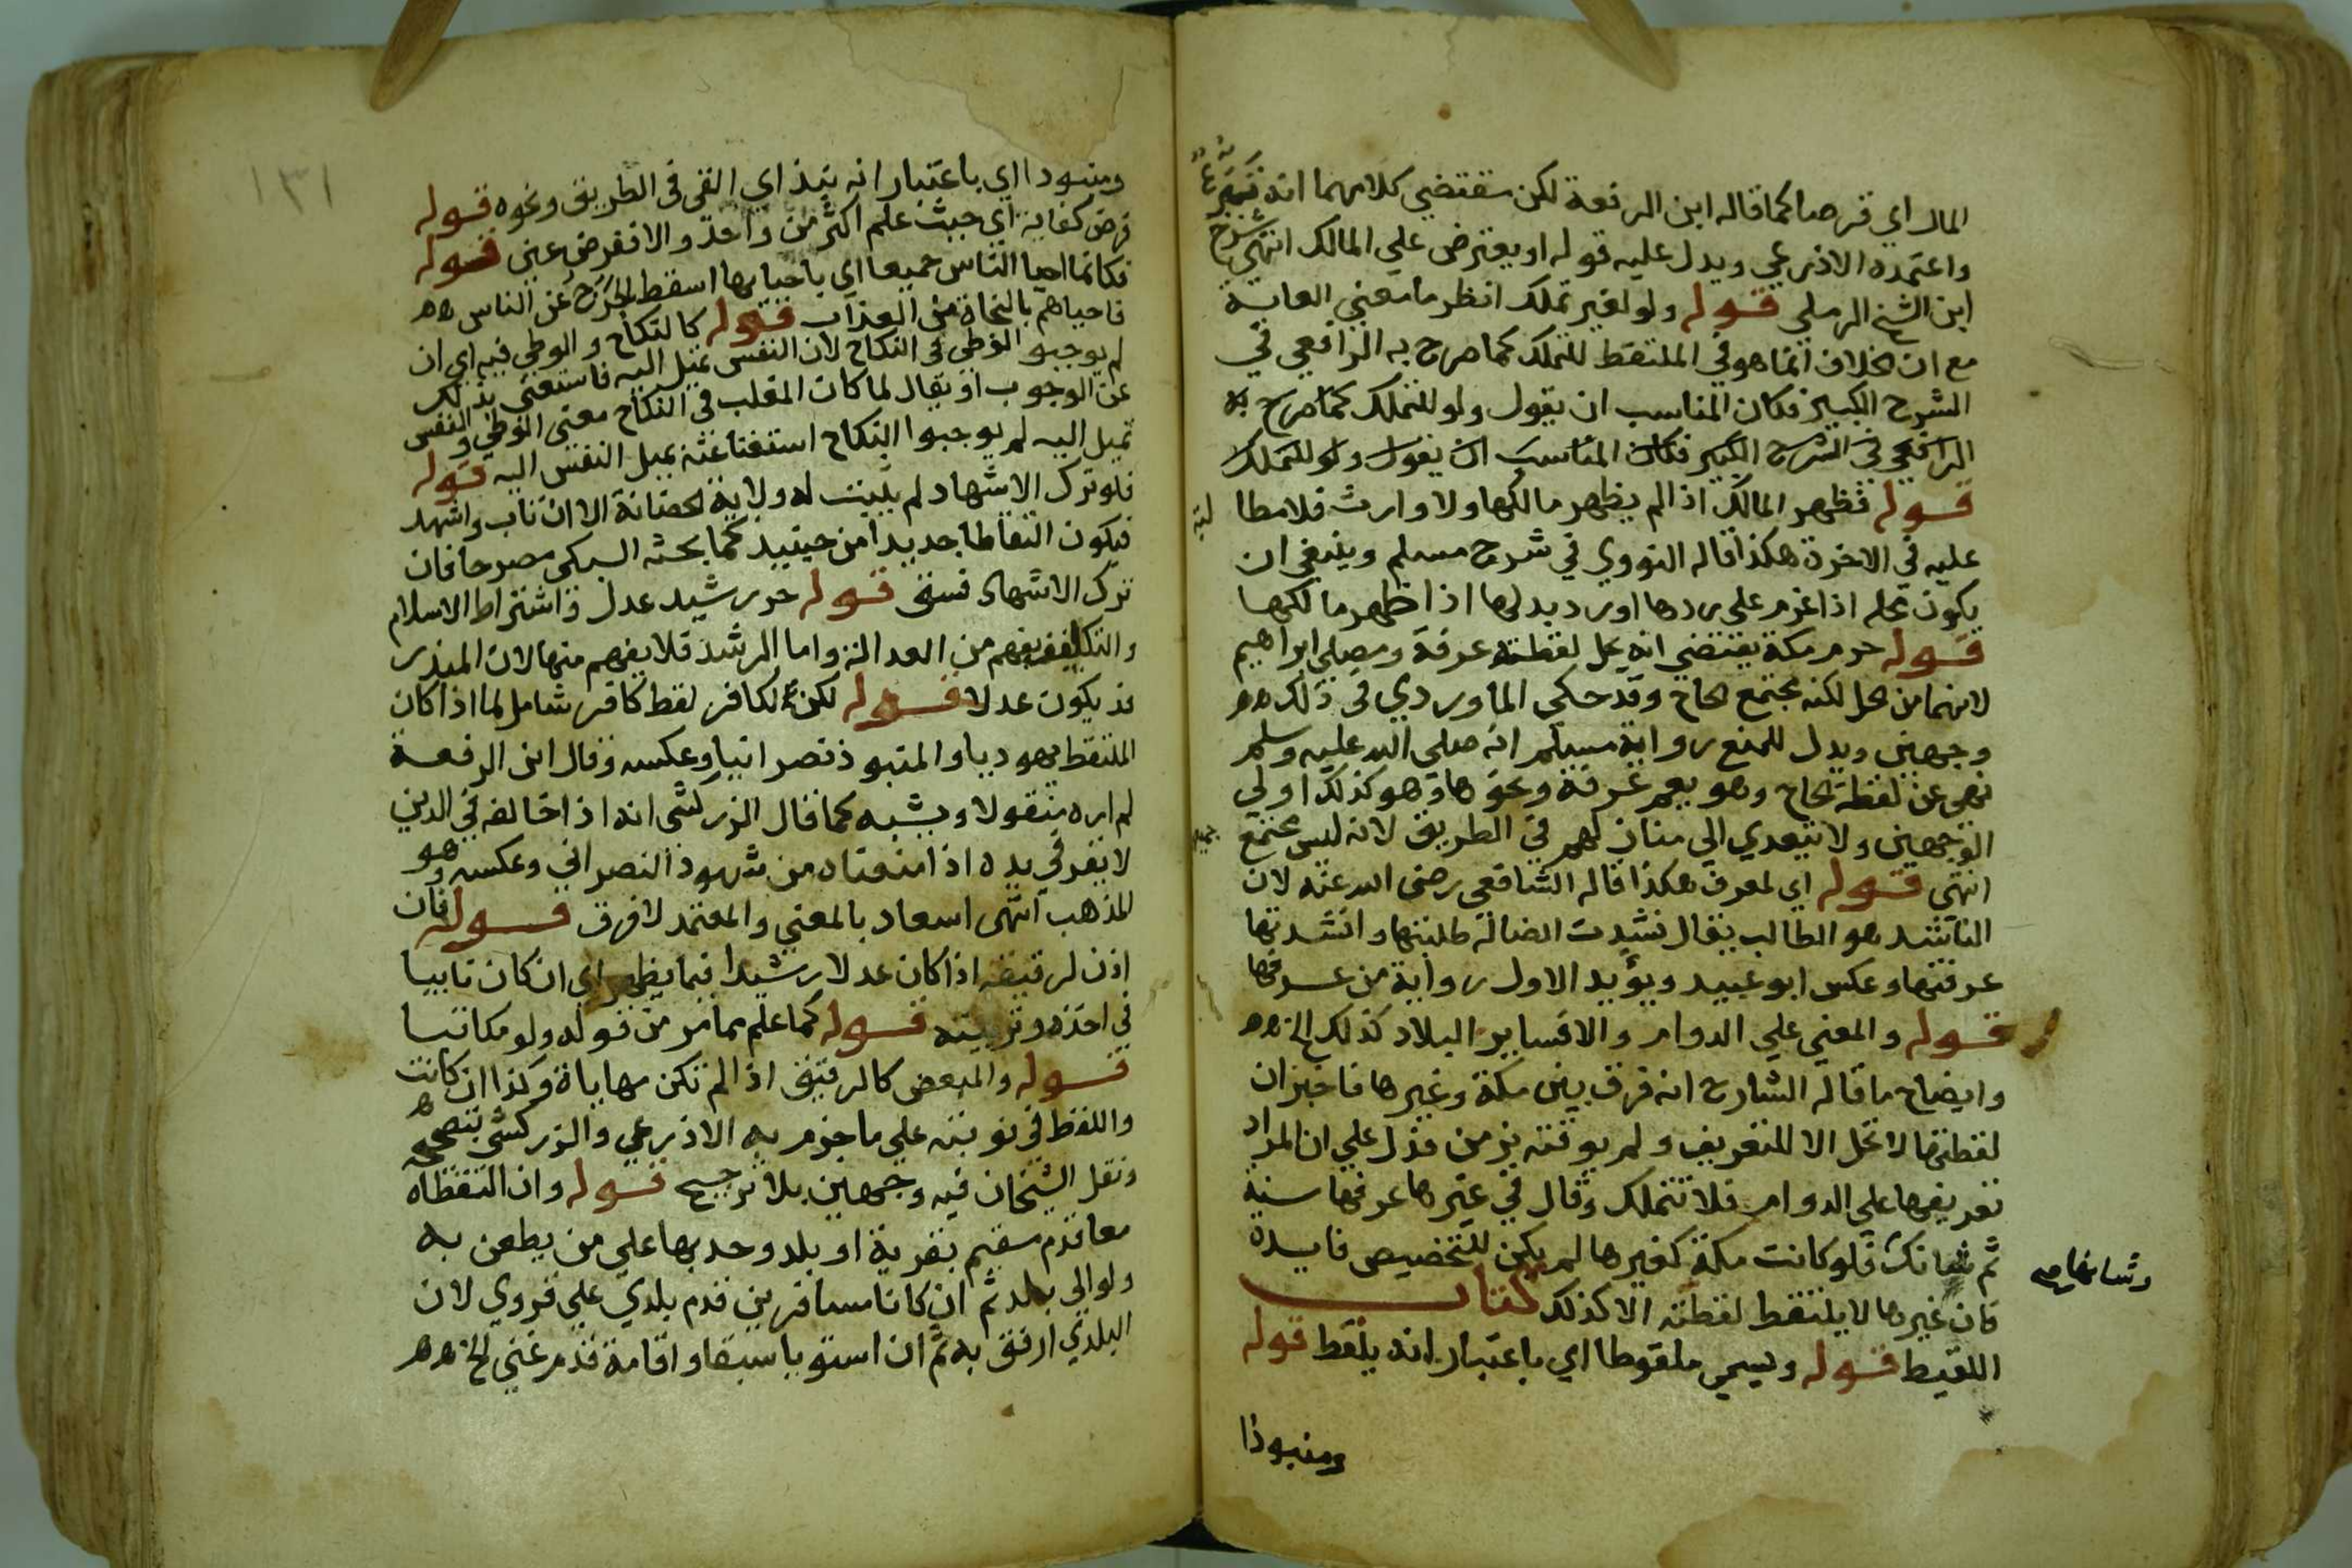 المال اي قرضا كما قاله ابن الرفعة لكن مقتضي كلامهما انه
واعتمده الاذرعي ويدل عليه قوله او يقترض علي المالك انتهي شرح
ابن الشيخ الرملي قوله ولو لغير تملك انظر ما معني الغاية
مع ان الخلاف انما هو في الملتقط للتملك كما صرح به الرافعي في
الشرح الكبير فكان المناسب ان يقول ولو للتملك كما صرح به
الرافعي في الشرح الكبير فكان المناسب ان يقول ولو للتملك
قوله فظهر المالك اذا لم يظهر مالكها ولا وارث فلا مطا
لبة
عليه في الاخرة هكذا قاله النووي في شرح مسلم وينبغي ان
يكون محله اذا عزم على ردها او رد بدلها اذا ظهر مالكها
قوله حرم مكة يقتضي انه يحل لقطة عرفة ومصلي ابراهيم
لانهما من الحل لكنه مجتمع الحاج وقد حكي الماوردي في ذلك
وجهين ويدل للمنع رواية مسلم انه صلى الله عليه وسلم
نهى عن لقطة الحاج وهو يعم عرفة ونحوها وهو كذلك اولي
الوجهين ولا يتعدي الي منازلهم في الطريق لانه ليس مجتمع
انتهى قوله اي لمعرف هكذا قاله الشافعي رضى الله عنه لان
الناشد هو الطالب يقال نشدت الضالة طلبتها وانشدتها
عرفتها وعكس ابو عبيد ويؤيد الاول رواية من عرفها
قوله والمعني علي الدوام والا فساير البلاد كذلك الخ
وايضاح ما قاله الشارح انه فرق بين مكة وغيرها فاخبر ان
لقطتها لا تحل الا للتعريف ولم يوقته بزمن فدل علي ان المراد
تعريفها علي الدوام فلا تتملك وقال في غيرها عرفها سنة
ثم شانك فلو كانت مكة كغيرها لم يكن للتخصيص فايدة
فان غيرها لا يلتقط لقطته الا كذلك كتاب
اللقيط قوله ويسمي ملقوطا اي باعتبار انه يلقط قوله
ومنبوذا
١٣١
ومنبوذا اي باعتبار انه ينبذ اي القى في الطريق ونحوه قوله
فرض كفاية اي حيث علم اكثر من واحد والا ففرض عين قوله
فكانما احيا الناس جميعا اي باحيائها اسقط الحرج عن الناس
فاحياهم بالنجاة من العذاب قوله كالنكاح والوطي فيه اي ان
لم يوجبوا الوطي في النكاح لان النفس تميل اليه فاستغني بذلك
عن الوجوب او يقال لما كان المغلب في النكاح معنى الوطي والنفس
تميل اليه لم يوجبوا النكاح استغناء عنه بميل النفس اليه قوله
فلو ترك الاشهاد لم يثبت له ولاية الحضانة الا ان تاب واشهد
فيكون التقاطا جديدا من حينيد كما بحثه السبكي مصرحا فان
ترك الاشهاد فسق قوله حر رشيد عدل واشتراط الاسلام
والتكليف يفهم من العدالة واما الرشد فلا يفهم منها لان المبذر
قد يكون عدلا قوله لكن لكافر لقط كافر شامل لما اذا كان
الملتقط يهوديا والمنبوذ نصرانيا وعكسه وقال ابن الرفعة
لم اره منقولا ويشبه كما قال الزركشي انه اذا خالفه في الدين
لا يقر في يده اذا منعناه من شهود النصراني وعكسه وهو
المذهب انتهى اسعاد بالمعني والمعتمد لا فرق قوله فان
اذن لرقيقه اذا كان عدلا رشيدا فيما يظهر اي ان كان نايبا
في اخذه وتربيته قوله كما علم مما مر من قوله ولو مكاتبا
قوله والمبعض كالرقيق اذا لم تكن مهاياة وكذا ان كانت
واللقط في نوبته علي ما جزم به الاذرعي والزركشي بتصحيحه
ونقل الشيخان فيه وجهين بلا ترجيح قوله وان التقطاه
معا قدم مقيم بقرية او بلد وحد بها علي من يظعن به
ولو الى بلد ثم ان كانا مسافرين قدم بلدي علي قروي لان
البلدي ارفق به ثم ان استويا سبقا واقامة قدم غني الخ